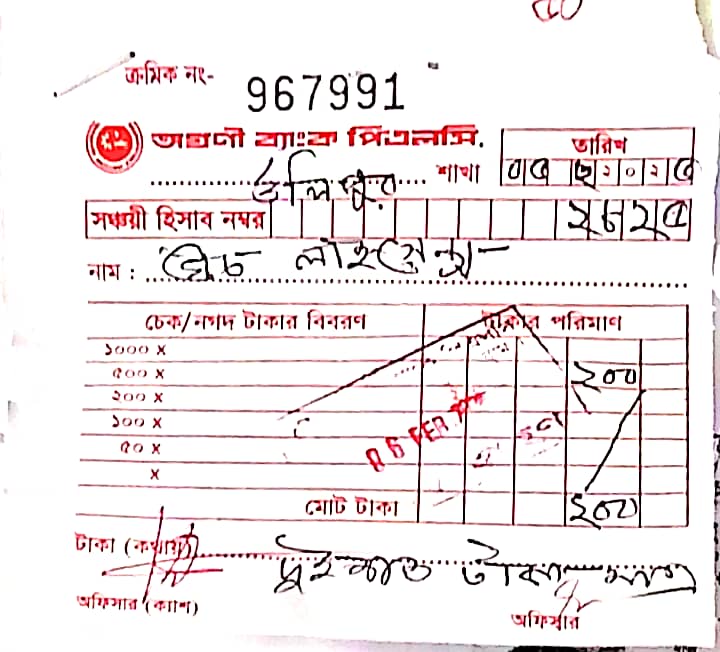 ক্রমিক নং- 967991
অগ্রণী ব্যাংক পিএলসি.
তারিখ
উলিপুর শাখা
২ ০ ২ ৫
সঞ্চয়ী হিসাব নম্বর
নাম :
চেক/নগদ টাকার বিবরণ টাকার পরিমাণ
১০০০ X
৫০০ X ২০০
২০০ X
১০০ X
৫০ X
X
06 FEB
মোট টাকা ২০০
টাকা (কথায়) দুইশত টাকা মাত্র
অফিসার (ক্যাশ) অফিসার